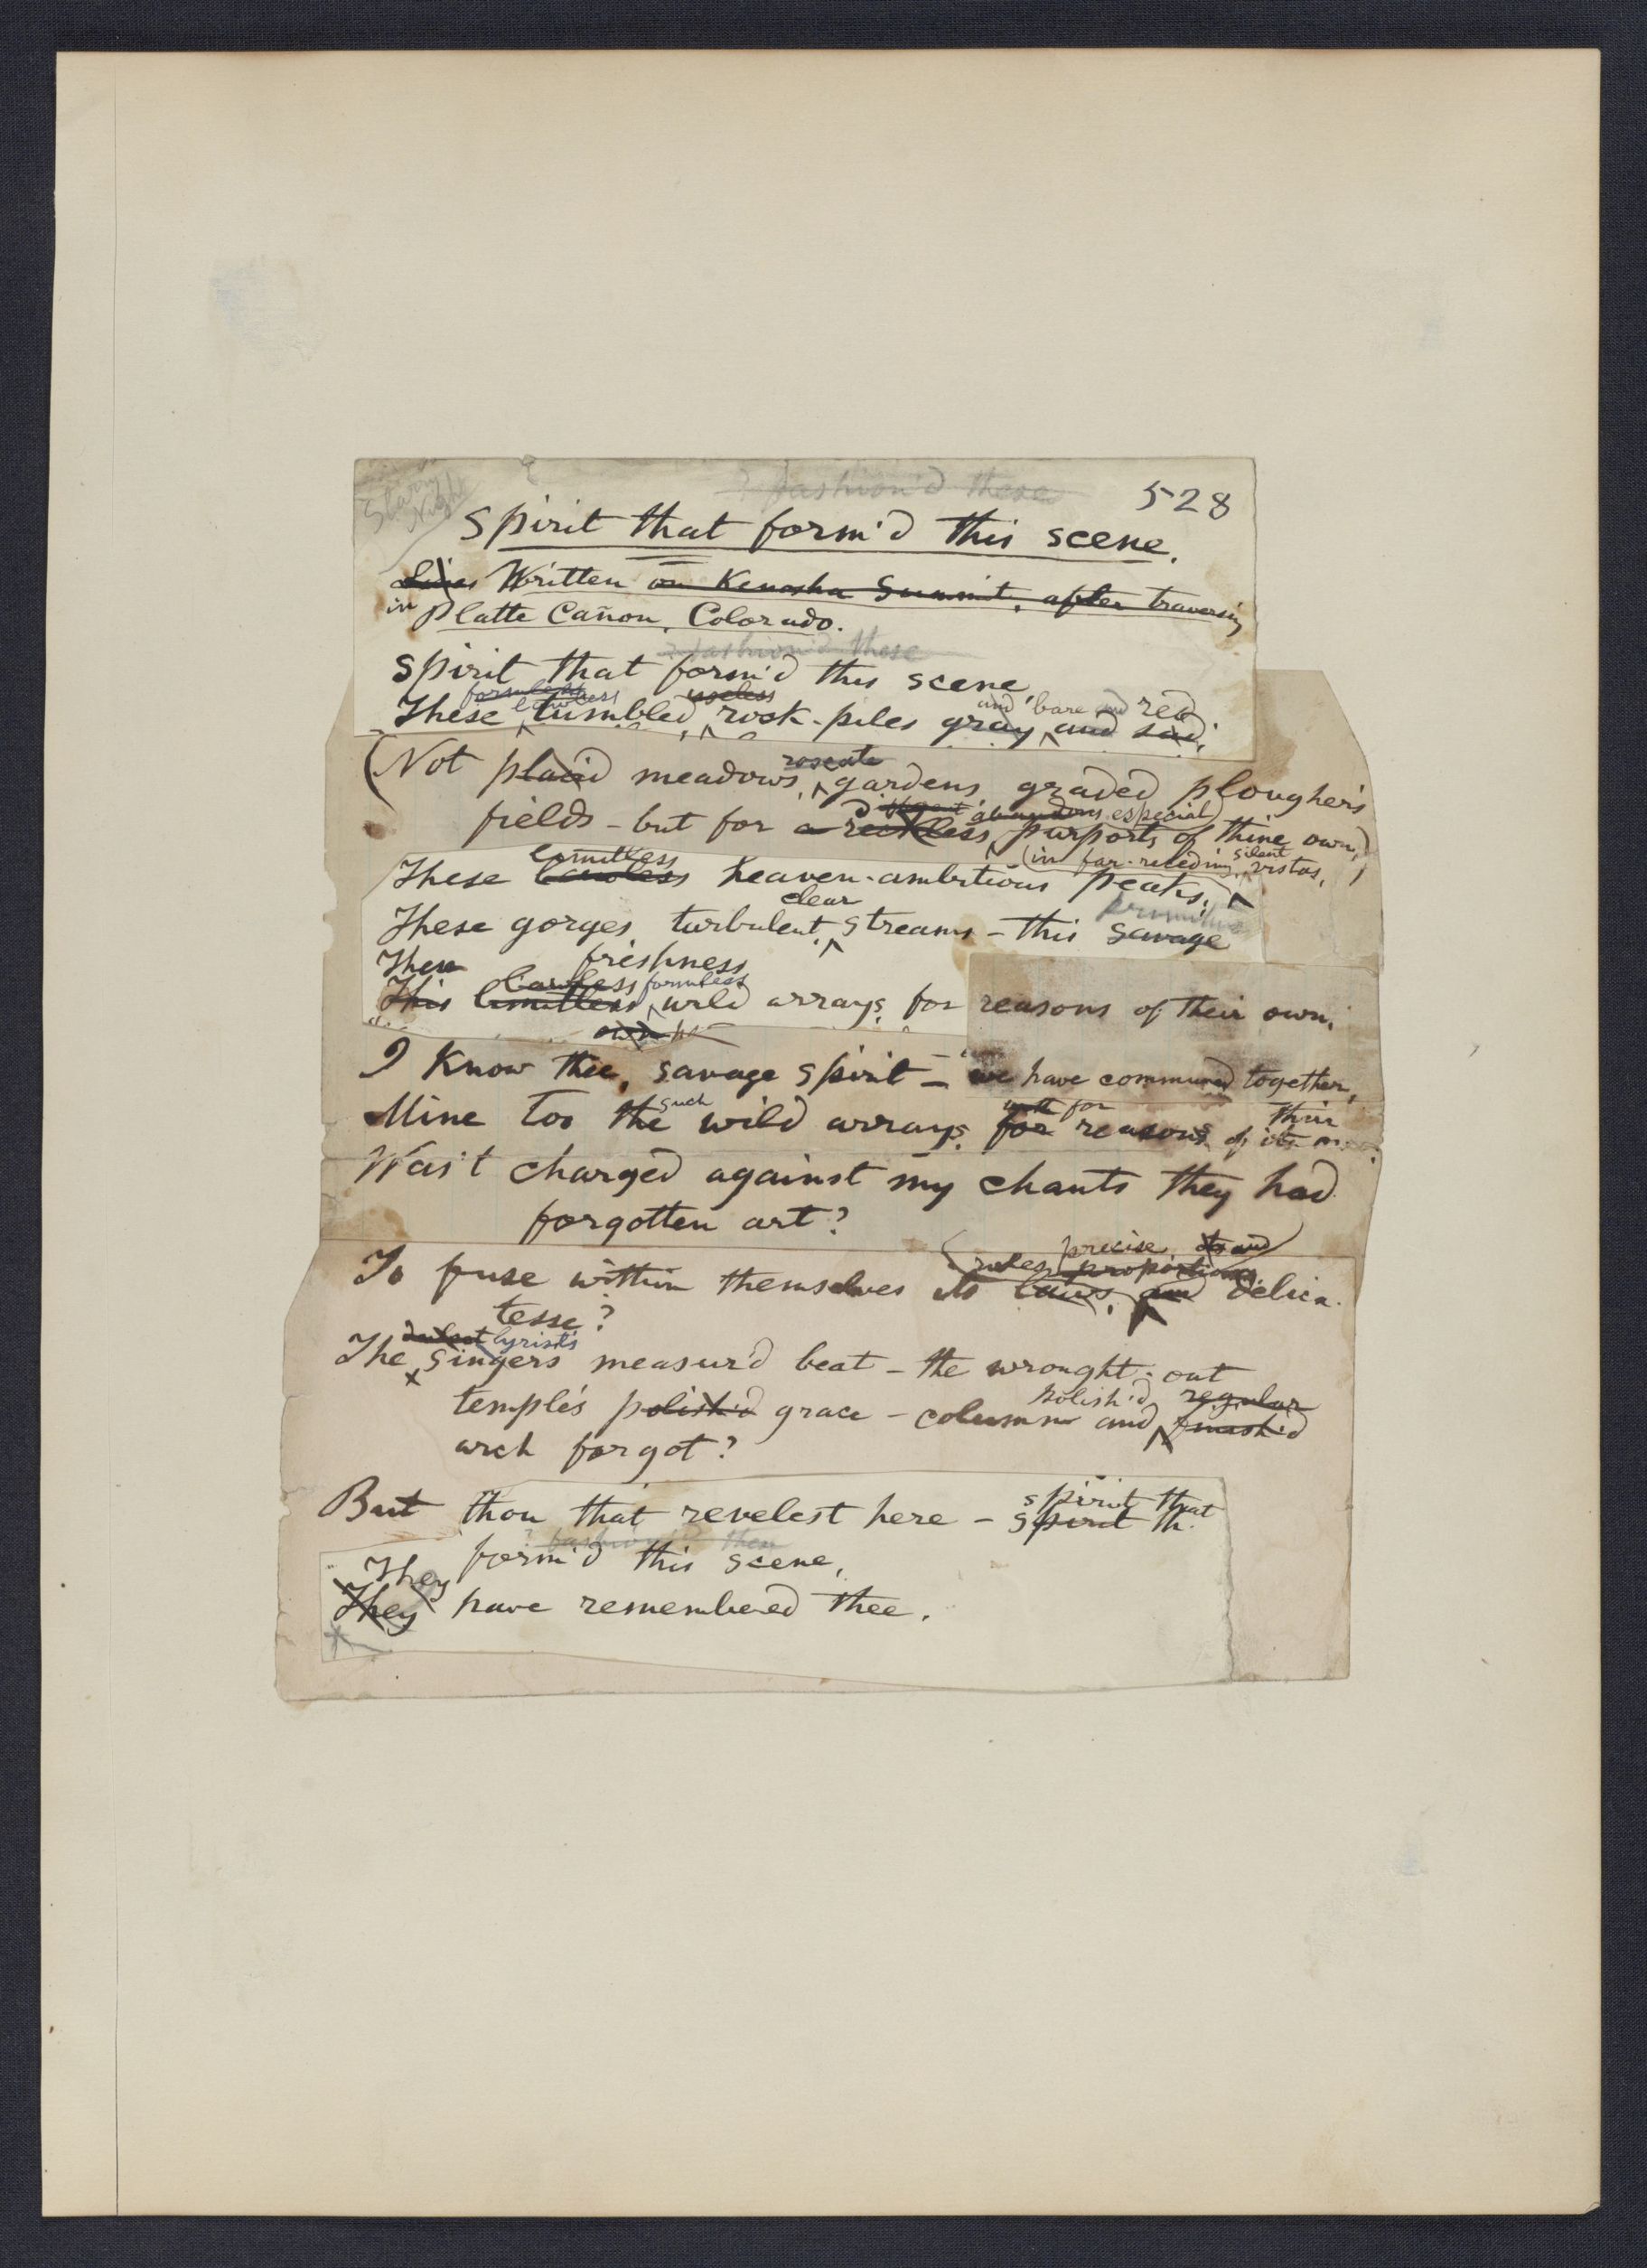 Starry
Night
? fashion'd these
528
Spirit that form'd this scene.
Lines Written on Kenosha Summit, after traversing
in Platte Cañon, Colorado.
? fashion'd these
Spirit that form'd this scene,
formless lawless useless and bare and red
These tumbled, rock-piles gray and sad,
roseate
(Not placid meadows, gardens, graded plougher's
abandons especial
fields - but for a reckless purports of thine own,)
limitless (in far-receding, silent vistas,)
These lawless heaven-ambitious peaks,
clear primitive
These gorges, turbulent, streams - this savage
These freshness
lawless formless
This limitless wild arrays, for reasons of their own,
I know thee, savage spirit - we have communed together,
such with for their
Mine too the wild arrays, for reasons of its
Was't charged against my chants they had
forgotten art?
precise, its and
rules proportions
To fuse within themselves its laws, and delica-
tesse?
lyrist's
The singers measur'd beat - the wrought-out
polish'd regular
temple's polish'd grace - column and finish'd
arch forgot?
spirit that
But thou that revelest here - spirit th
? fashion'd these
form'd this scene,
They
They have remembered thee.